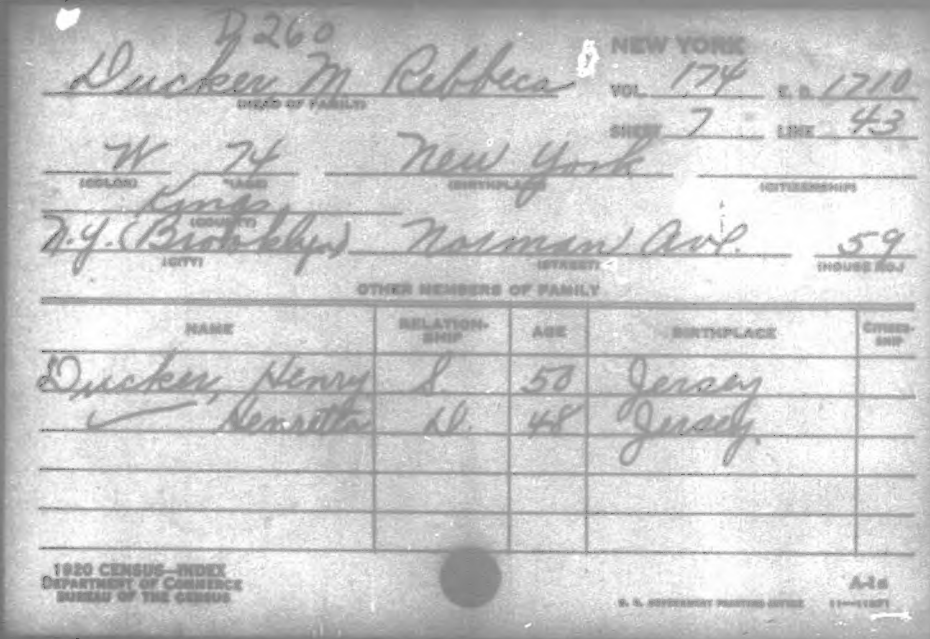 D260
NEW YORK
Ducker, M Rebbeca
VOL. 174 E. D. 1710
(HEAD OF FAMILY)
SHEET 7 LINE 43
W 74 New York
(COLOR) (AGE) (BIRTHPLACE) (CITIZENSHIP)
Kings
(COUNTY)
N.Y. (Brooklyn) Norman Ave. 59
(CITY) (STREET) (HOUSE NO.)
OTHER MEMBERS OF FAMILY
NAME RELATION-SHIP AGE BIRTHPLACE CITIZEN-SHIP
Ducker, Henry S. 50 Jersey
Henretta D. 48 Jersey
1920 CENSUS—INDEX
DEPARTMENT OF COMMERCE
BUREAU OF THE CENSUS
A-1a
U. S. GOVERNMENT PRINTING OFFICE